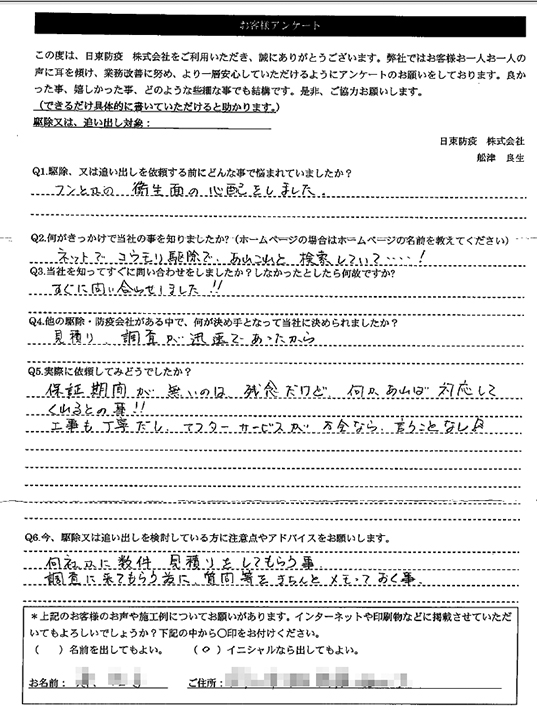 お客様アンケート
この度は、日東防疫 株式会社をご利用いただき、誠にありがとうございます。弊社ではお客様お一人お一人の
声に耳を傾け、業務改善に努め、より一層安心していただけるようにアンケートのお願いをしております。良か
った事、嬉しかった事、どのような些細な事でも結構です。是非、ご協力お願いします。
(できるだけ具体的に書いていただけると助かります。)
駆除又は、追い出し対象:
日東防疫 株式会社
舩津 良生
Q1.駆除、又は追い出しを依頼する前にどんな事で悩まれていましたか?
フンとかの 衛生面の心配をしました.
Q2.何がきっかけで当社の事を知りましたか?(ホームページの場合はホームページの名前を教えてください)
ネットで コウモリ駆除で、あれこれと 検索していて・・・・!
Q3.当社を知ってすぐに問い合わせをしましたか?しなかったとしたら何故ですか?
すぐに問い合わせしました!!
Q4.他の駆除・防疫会社がある中で、何が決め手となって当社に決められましたか?
見積り、調査が迅速であったから
Q5.実際に依頼してみどうでしたか?
保証期間が無いのは残念だけど、何かあれば対応して
くれるとの事!!
工事も丁寧だし、アフターサービスが万全なら、言うことなし
Q6.今、駆除又は追い出しを検討している方に注意点やアドバイスをお願いします。
何社かに数件 見積りをしてもらう事.
調査に来てもらう前に、質問等をきちんとメモっておく事.
*上記のお客様のお声や施工例についてお願いがあります。インターネットや印刷物などに掲載させていただ
いてもよろしいでしょうか?下記の中から〇印をお付けください。
( )名前を出してもよい。 (○)イニシャルなら出してもよい。
お名前: ご住所: